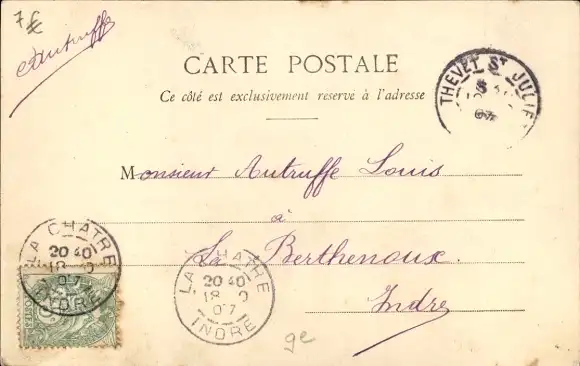 7€
Autruffe
CARTE POSTALE
Ce côté est exclusivement reservé à l'adresse
THEVET St JULIEN
Monsieur Autruffe Louis
à
La Berthenoux.
Indre
LA CHATRE
20 40
18 9
07
INDRE
LA CHATRE
20 40
18 9
07
INDRE
ge